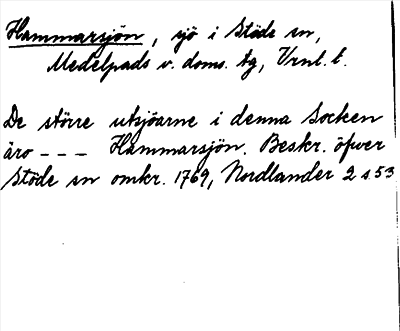 Hammarsjön, sjö i Stöde sn,
Medelpads v. doms. tg, Vrnl. l.
De större utsjöarne i denna Socken
äro - - - Hammarsjön. Beskr. öfver
Stöde sn omkr. 1769, Nordlander 2 s. 53